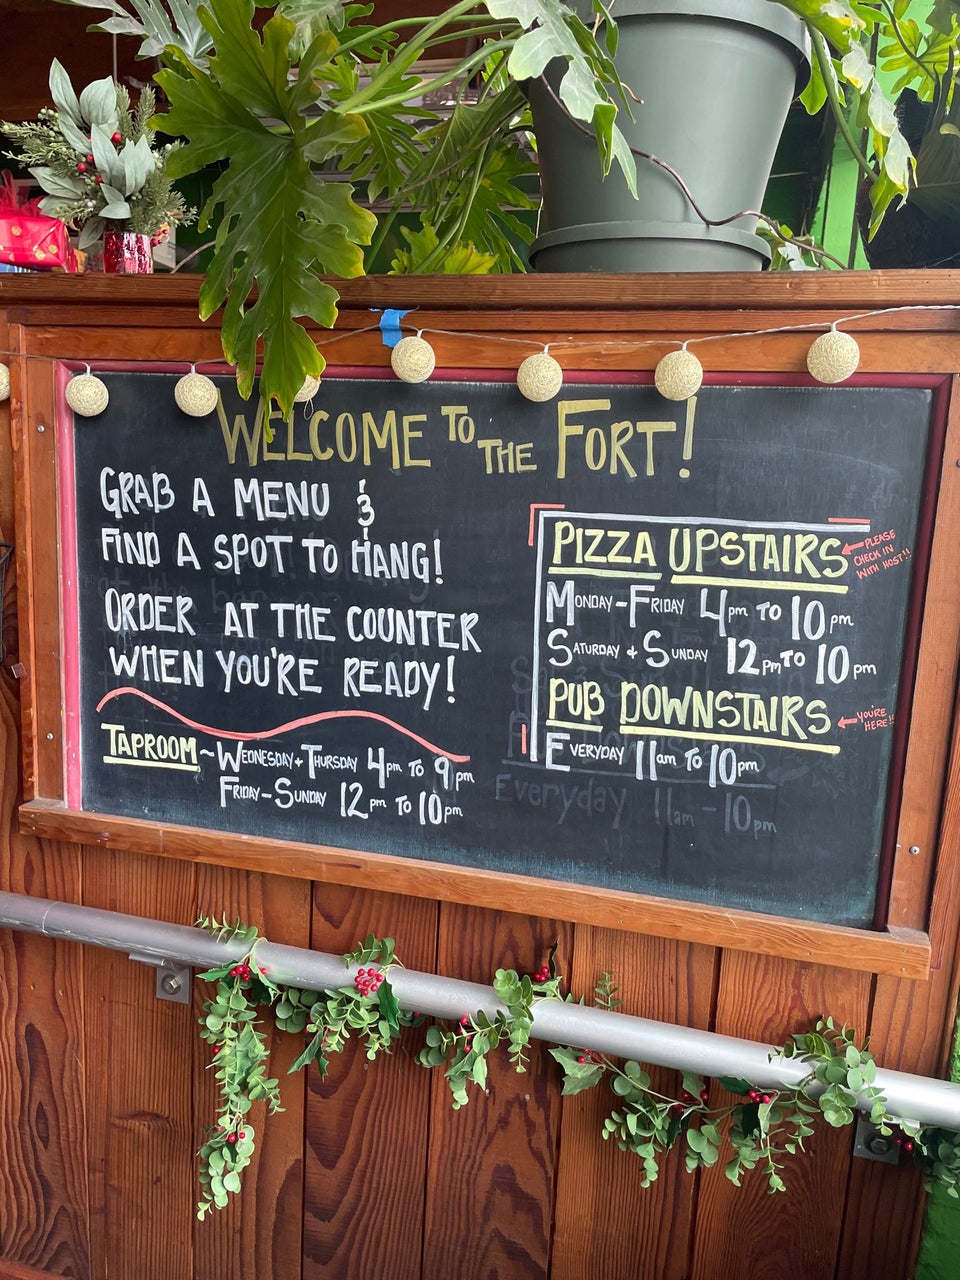 WELCOME TO THE FORT!
GRAB A MENU &
FIND A SPOT TO HANG!
ORDER AT THE COUNTER
WHEN YOU'RE READY!
TAPROOM ~ WEDNESDAY + THURSDAY 4pm TO 9pm
FRIDAY - SUNDAY 12pm TO 10pm
PIZZA UPSTAIRS
PLEASE
CHECK IN
WITH HOST!!
MONDAY - FRIDAY 4pm TO 10pm
SATURDAY + SUNDAY 12pm TO 10pm
PUB DOWNSTAIRS
YOU'RE
HERE!!
EVERYDAY 11am TO 10pm
Everyday 11am - 10pm